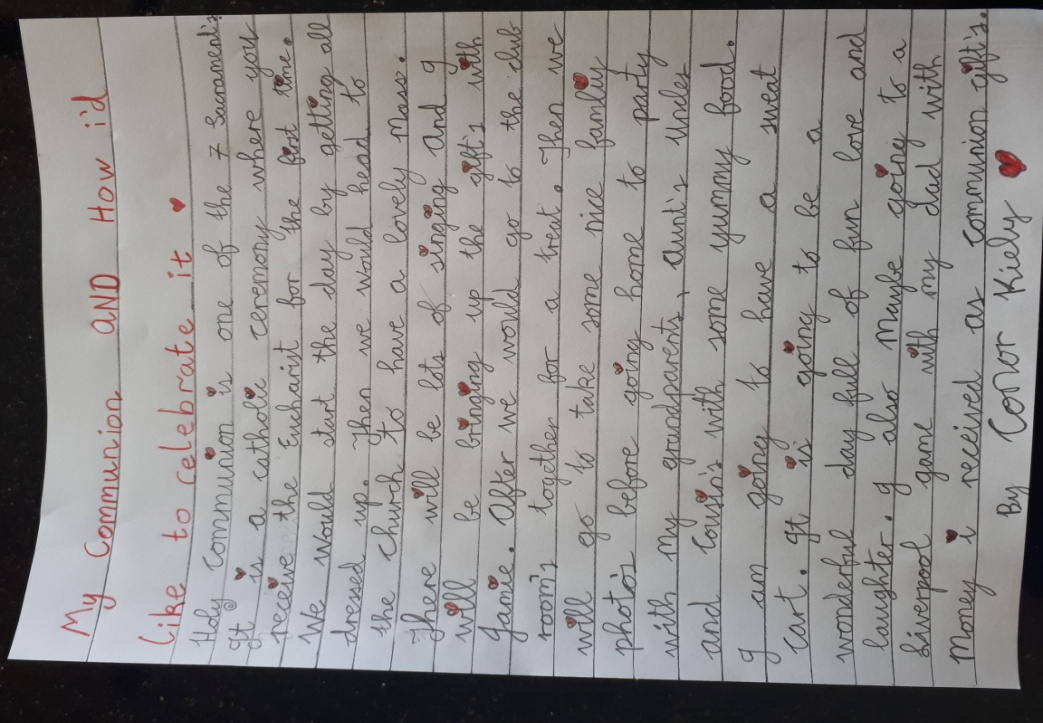 My Communion AND How i'd
Like to celebrate it
Holy communion is one of the 7 Sacrament's
It is a catholic ceremony where you
receive the Eucharist for the first time.
We Would start the day by getting all
dressed up. Then we would head to
the church to have a lovely Mass.
There will be lots of singing and I
will be bringing up the gift's with
Jamie. After we would go to the club
room's together for a treat. Then we
will go to take some nice family
photo's before going home to party
with my grandparents, aunt's Uncles
and Cousin's with some yummy food.
I am going to have a sweat
cart. It is going to be a
wonderful day full of fun love and
laughter. I also maybe going to a
Liverpool game with my dad with
Money i received as communion gift's.
By Conor Kiely